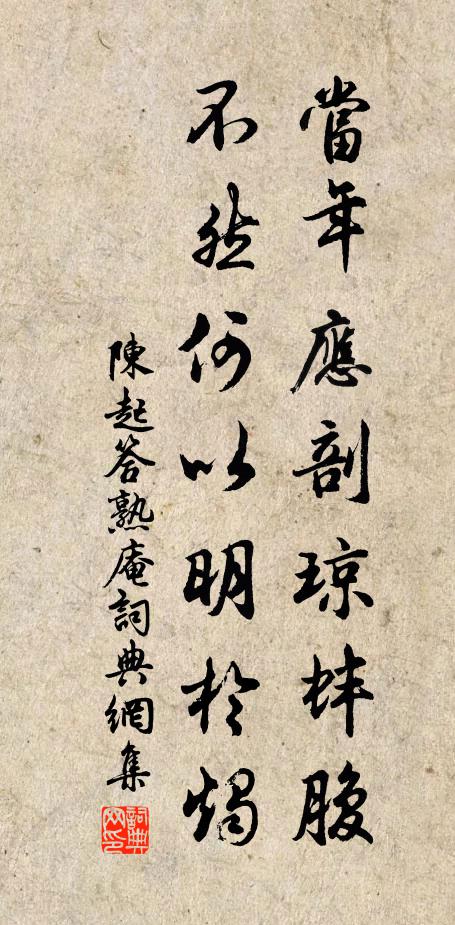 當年應剖琼蚌腹
不然何以明於燭
陳起答熟庵詞典網集
詞典网印